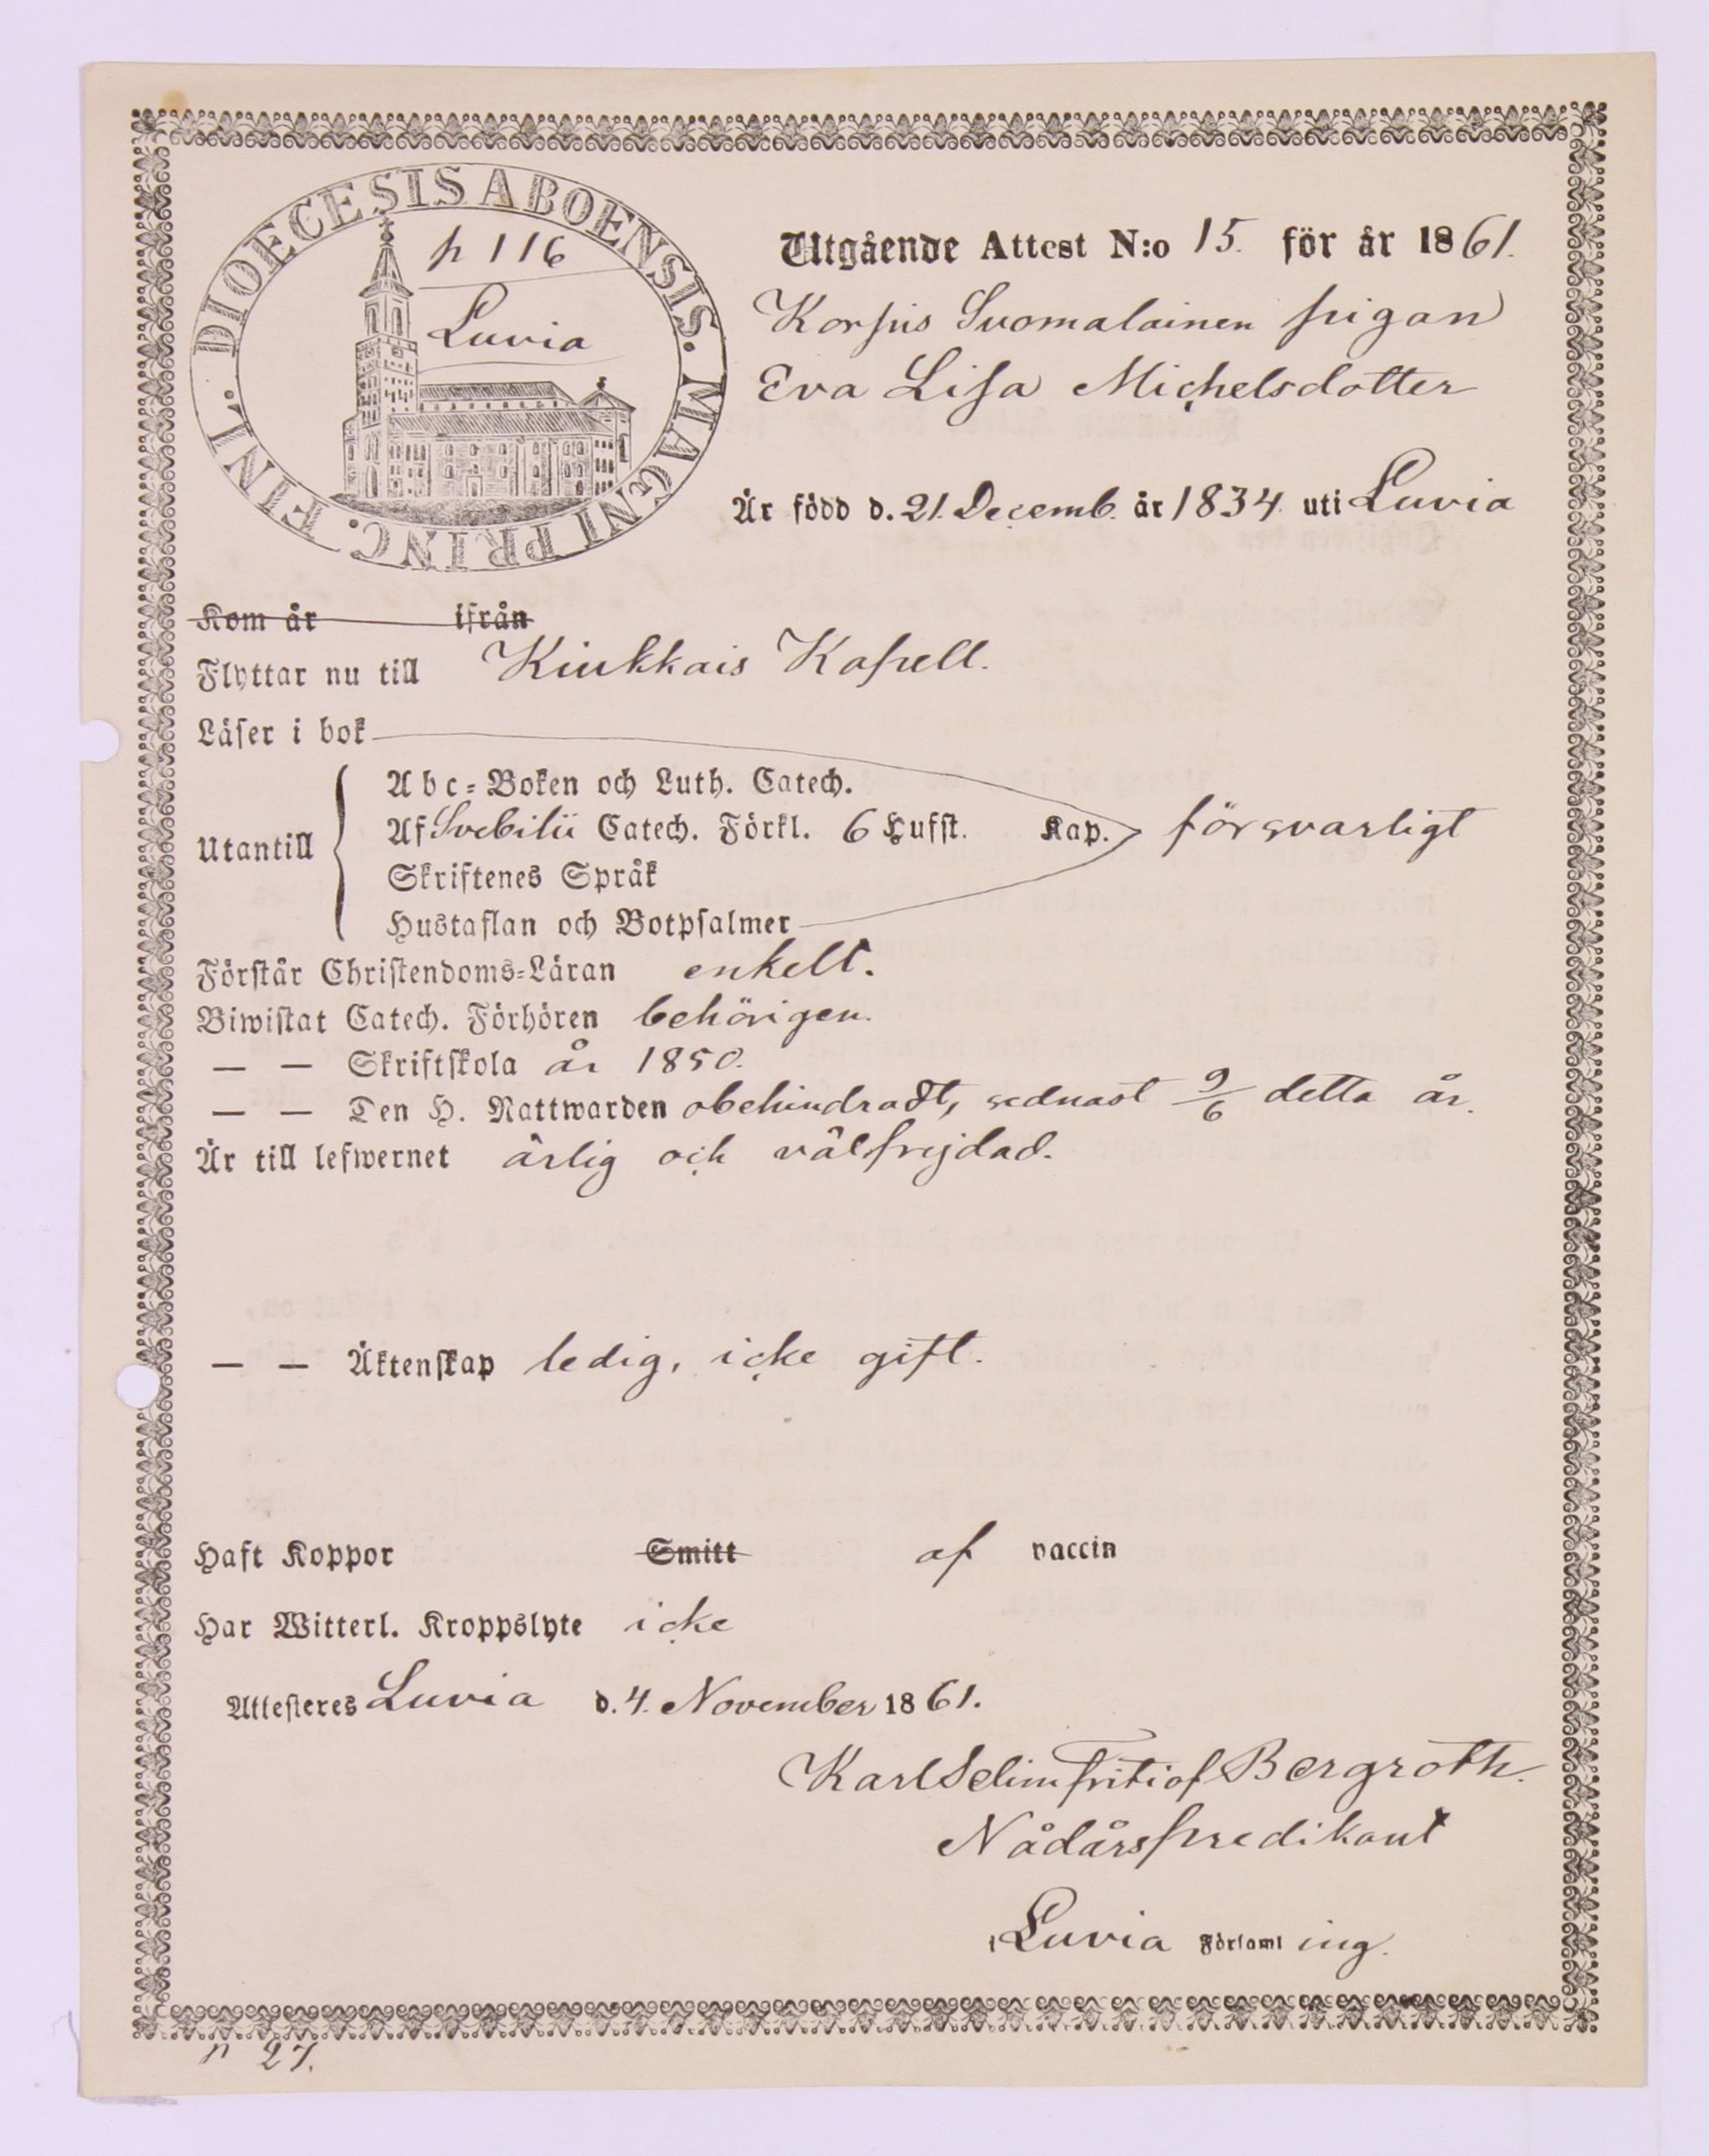 DIOECESIS ABOENSIS. MAGNI PRINC. FINL.
p 116
Luvia
Utgående Attest N:o 15. för år 1861.
Korpis Suomalainen pigan
Eva Lisa Michelsdotter
Är född d. 21. Decemb. år 1834. uti Luvia
Kom år ifrån
Flyttar nu till Kiukkais Kapell.
Läser i bok
Utantill
Abc-Boken och Luth. Catech.
Af Svebilii Catech. Förkl. 6 Hufst. Kap. försvarligt
Skriftenes Språk
Hustaflan och Botpsalmer
Förstår Christendoms-Läran enkelt.
Biwistat Catech. Förhören behörigen.
— — Skriftskola år 1850.
— — Den H. Nattwarden obehindradt, sednast 9/6 detta år.
Är till lefwernet ärlig och välfrejdad.
— — Äktenskap ledig, icke gift.
Haft Koppor Smitt af vaccin
Har Witterl. Kroppslyte icke
Attesteres Luvia d. 4. November 1861.
Karl Selim Fritiof Bergroth.
Nådårspredikant
i Luvia Församling.
p 27.